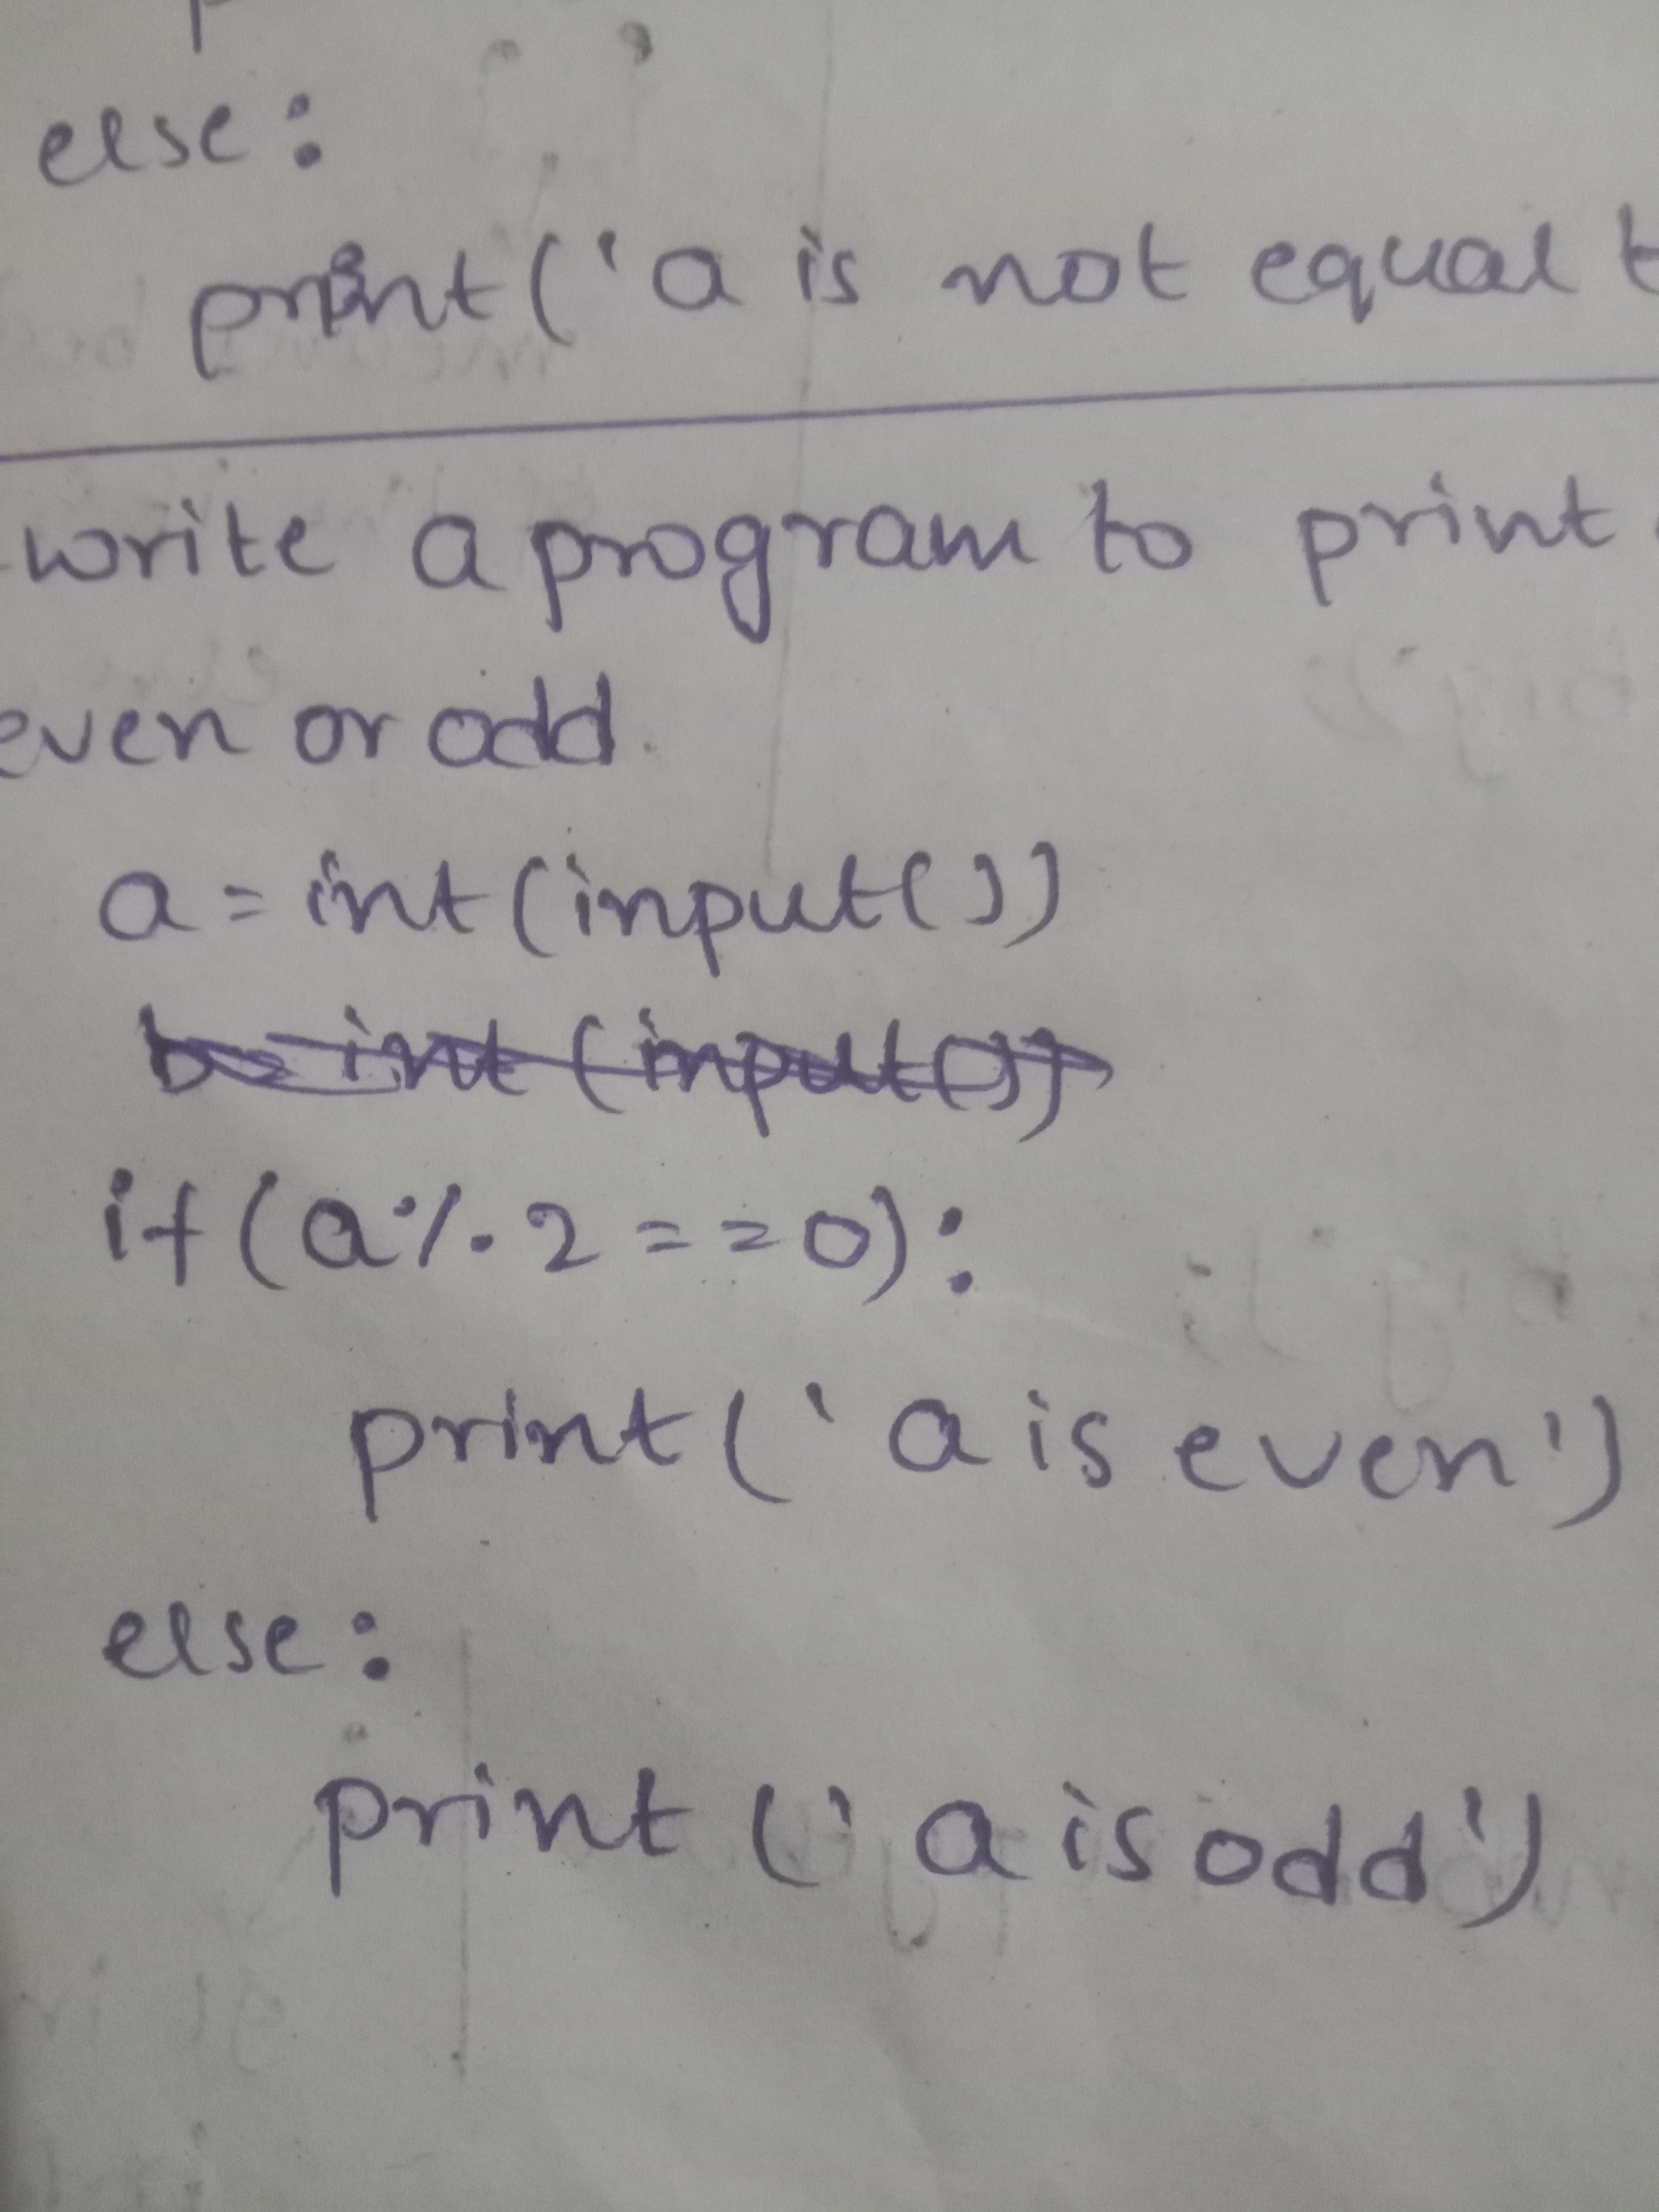 else:
print('a is not equal t
write a program to print
even or odd.
a = int(input())
b = int(input())
if(a%2 == 0):
print('a is even')
else:
print('a is odd')